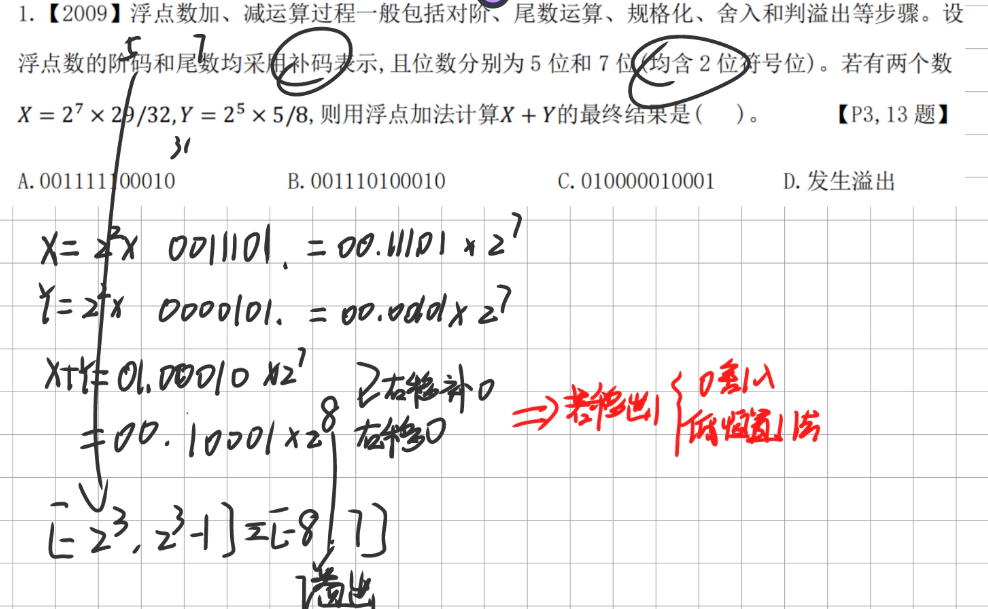 1.【2009】浮点数加、减运算过程一般包括对阶、尾数运算、规格化、舍入和判溢出等步骤。设
5 7
浮点数的阶码和尾数均采用补码表示,且位数分别为 5 位和 7 位(均含 2 位符号位)。若有两个数
X = 2⁷ × 29/32, Y = 2⁵ × 5/8, 则用浮点加法计算X + Y的最终结果是( )。 【P3, 13 题】
A. 001111100010 B. 001110100010 C. 010000010001 D. 发生溢出
X = 2²× 0011101. = 00.11101 × 2⁷
Y = 2²× 0000101. = 00.00101 × 2⁷
X+Y = 01.00010 × 2⁷ 右移补0
= 00.10001 × 2⁸ 右移0
⇒ 若移出1 { 0舍1入
恒置1法
[-2³, 2³-1] = [-8, 7]
溢出